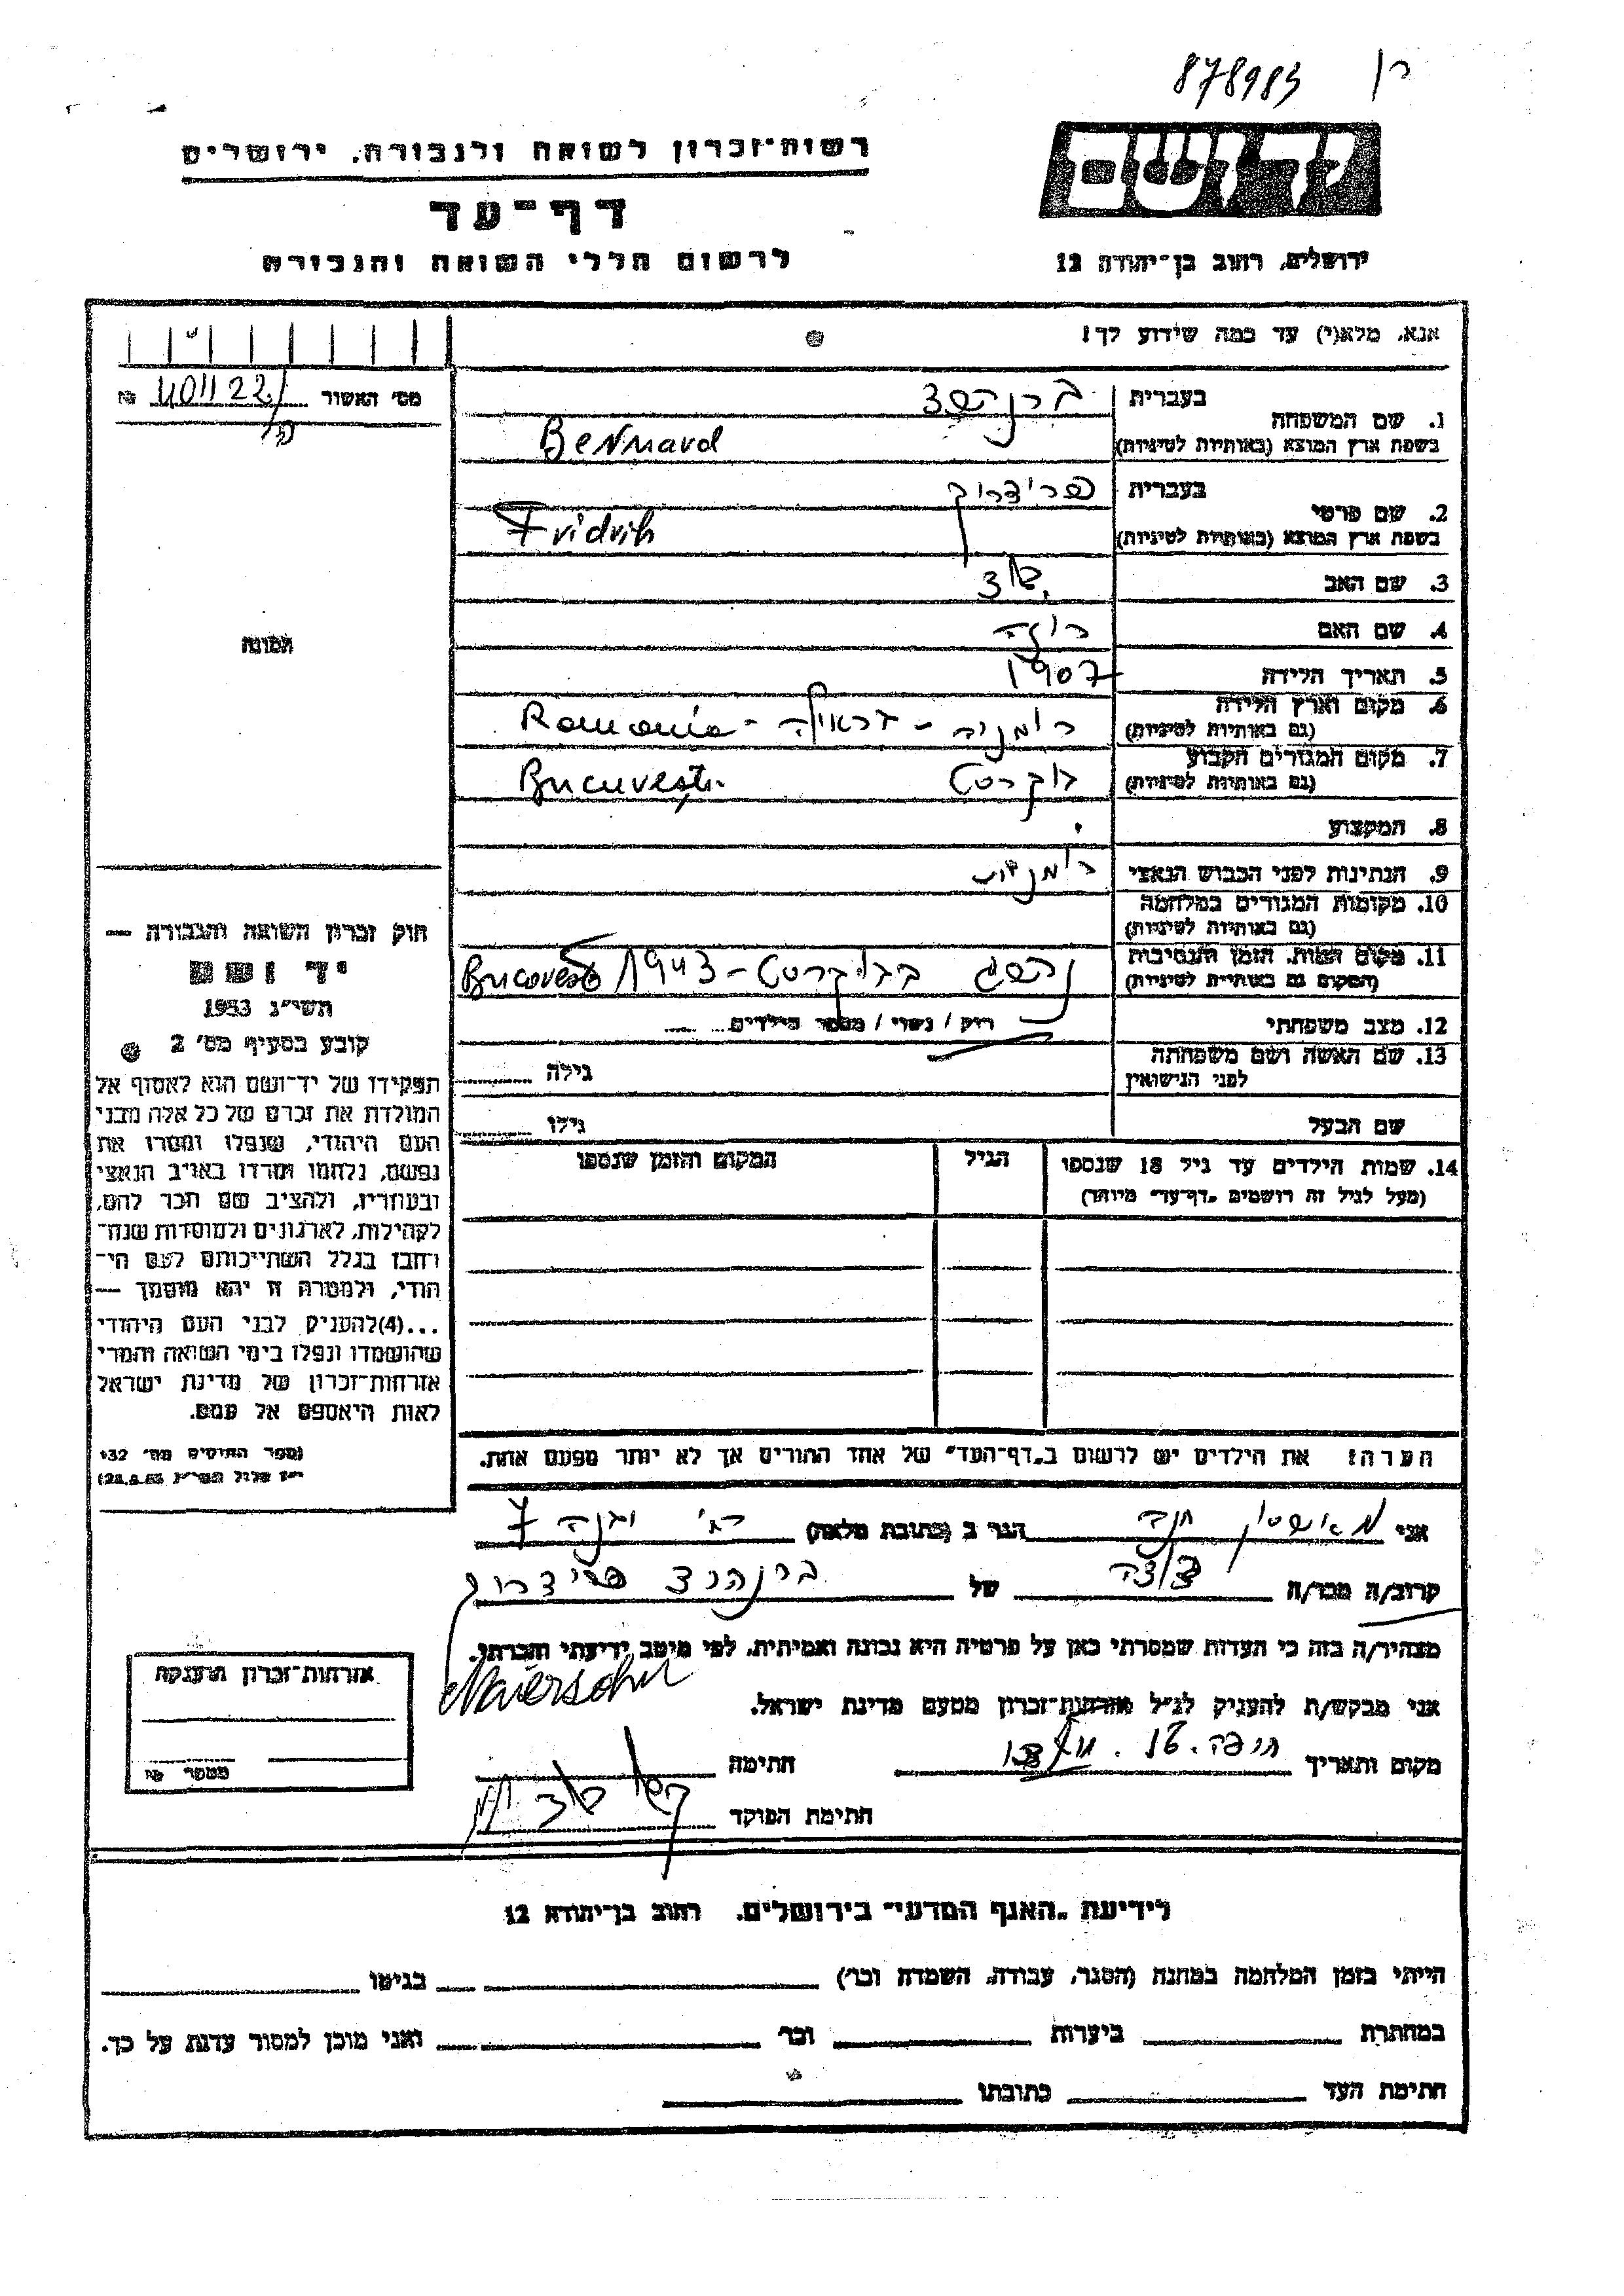 878983
רשות־זכרון לשואה ולגבורה, ירושלים
יד ושם
דף־עד
לרשום חללי השואה והגבורה
ירושלים, רחוב בן־יהודה 12
אנא, מלא(י) עד כמה שידוע לך!
מס׳ האשור
1. שם המשפחה
בעברית
בשפת ארץ המוצא (באותיות לטיניות) Bernard
2. שם פרטי
בעברית פרידריך
בשפת ארץ המוצא (באותיות לטיניות) Fridrih
3. שם האב
4. שם האם רוזה
5. תאריך הלידה 1907
6. מקום וארץ הלידה
(גם באותיות לטיניות) רומניה - Romania -
7. מקום המגורים הקבוע
(גם באותיות לטיניות) בוקרסט Bucuresti
8. המקצוע
9. הנתינות לפני הכבוש הנאצי רומנית
10. מקומות המגורים במלחמה
(גם באותיות לטיניות)
11. מקום המות, הזמן והנסיבות
(המקום גם באותיות לטיניות) נהרג בבוקרסט - 1943
12. מצב משפחתי רוק / נשוי / מספר הילדים
13. שם האשה ושם משפחתה
לפני הנישואין
גילה
שם הבעל
גילו
14. שמות הילדים עד גיל 18 שנספו
(מעל לגיל זה רושמים „דף־עד״ מיוחד)
הגיל
המקום והזמן שנספו
הערה: את הילדים יש לרשום ב„דף־העד״ של אחד ההורים אך לא יותר מפעם אחת.
תמונה
חוק זכרון השואה והגבורה —
יד ושם
תשי״ג 1953
קובע בסעיף מס׳ 2
תפקידו של יד־ושם הוא לאסוף אל
המולדת את זכרם של כל אלה מבני
העם היהודי, שנפלו ומסרו את
נפשם, נלחמו ומרדו באויב הנאצי
ובעוזריו, ולהציב שם וזכר להם,
לקהילות, לארגונים ולמוסדות שנח־
רבו בגלל השתייכותם לעם הי־
הודי, ולמטרה זו יהא מוסמך —
...(4)להעניק לבני העם היהודי
שהושמדו ונפלו בימי השואה והמרי
אזרחות־זכרון של מדינת ישראל
לאות היאספם אל עמם.
(ספר החוקים מס׳ 132
אני חנה הגר ב (כתובת מלאה) 7
קרוב/ה מכר/ה של פרידריך
מצהיר/ה בזה כי העדות שמסרתי כאן על פרטיה היא נכונה ואמיתית, לפי מיטב ידיעתי והכרתי.
אני מבקש/ת להעניק לנ״ל אזרחות־זכרון מטעם מדינת ישראל.
מקום ותאריך חיפה
חתימה
חתימת הפוקד
אזרחות־זכרון הוענקה
מספר
לידיעת „האגף המדעי״ בירושלים, רחוב בן־יהודה 12
הייתי בזמן המלחמה במחנה (הסגר, עבודה, השמדה וכו׳) בגיטו
במחתרת ביערות וכו׳ ואני מוכן למסור עדות על כך.
חתימת העד כתובתו